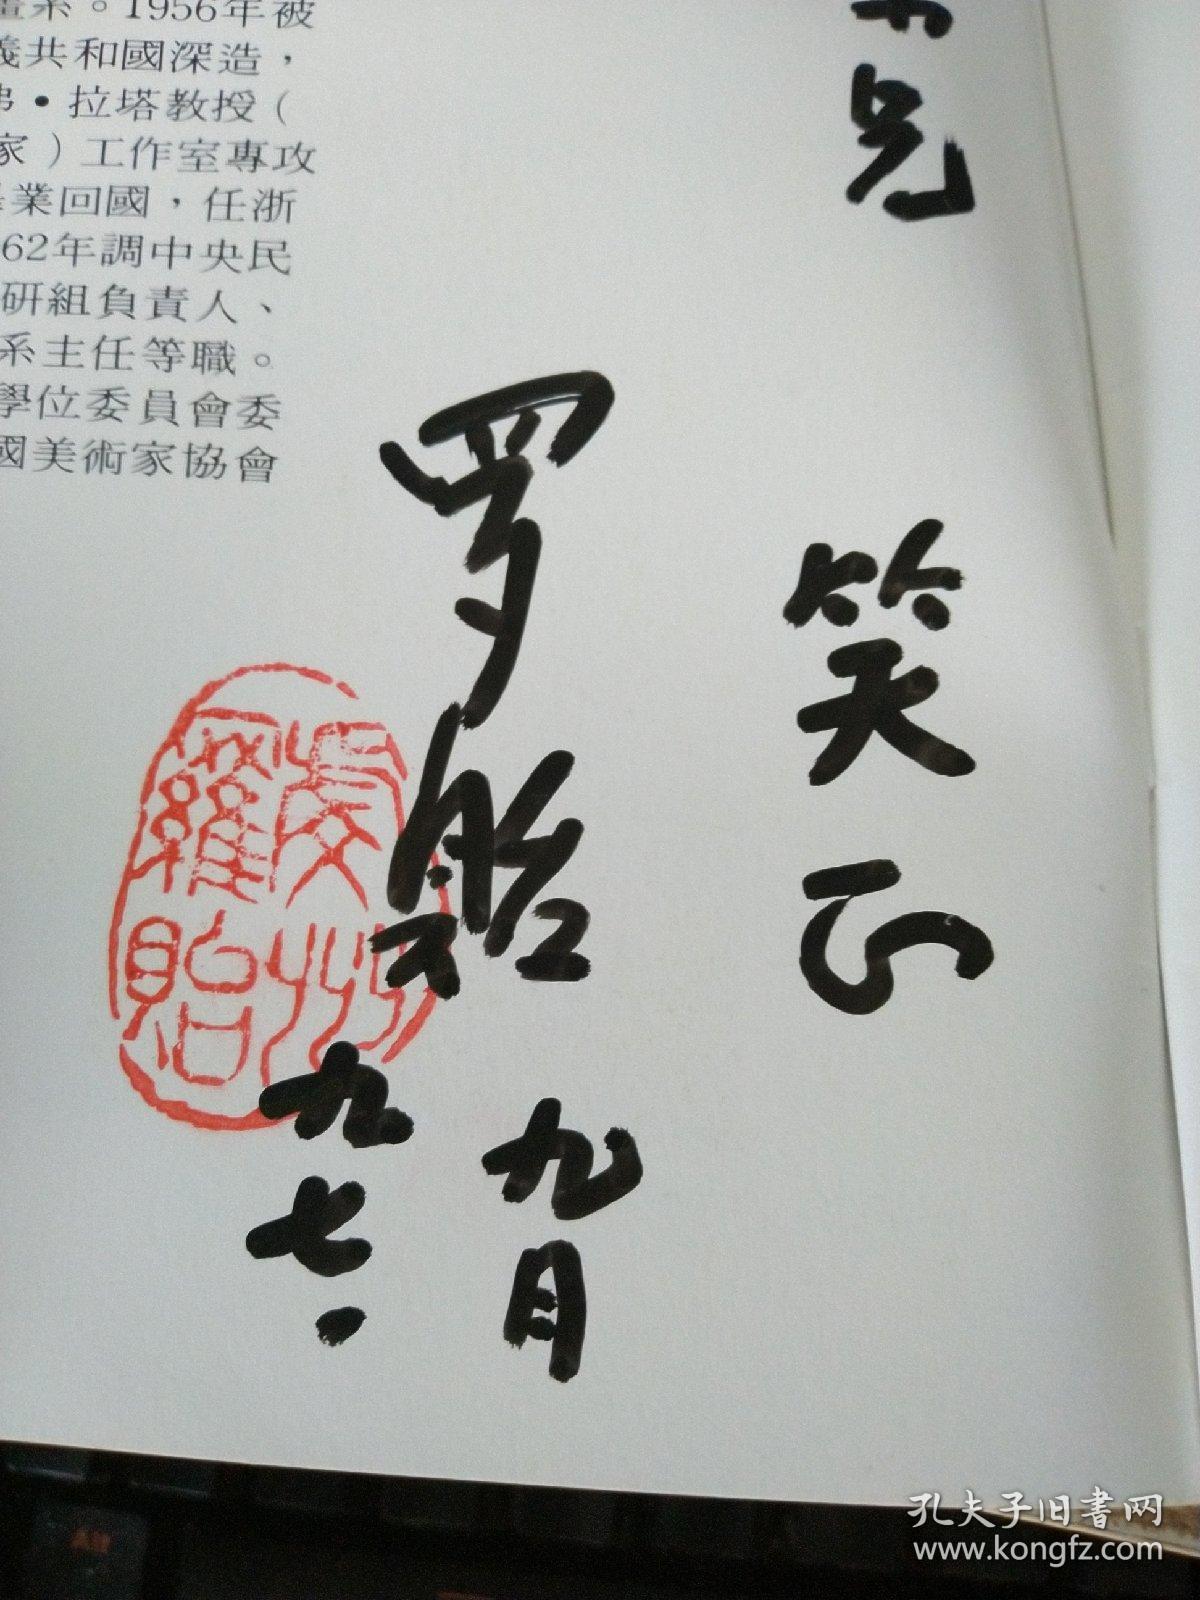 畫系。1956年被
義共和國深造，
弗·拉塔教授（
家）工作室專攻
畢業回國，任浙
62年調中央民
研組負責人、
系主任等職。
學位委員會委
國美術家協會
兄
笑正
罗贻
九月
九七、
羅貽
孔夫子旧书网
www.kongfz.com